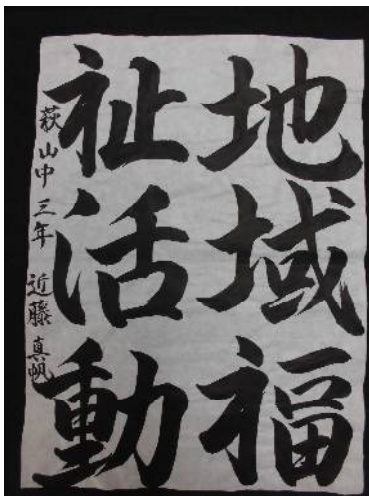 地域福
祉活動
萩山中三年 近藤真帆